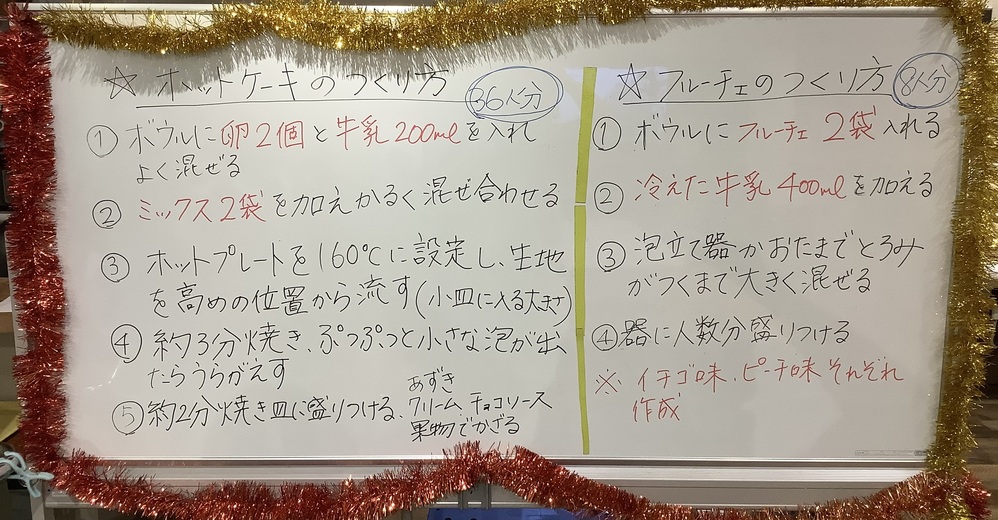 ☆ ホットケーキのつくり方 36人分
① ボウルに卵2個と牛乳200mlを入れ
よく混ぜる
② ミックス2袋を加えかるく混ぜ合わせる
③ ホットプレートを160℃に設定し、生地
を高めの位置から流す(小皿に入る大きさ)
④ 約3分焼き、ぷつぷつと小さな泡が出
たらうらがえす
⑤ 約2分焼き皿に盛りつける、
あずき
クリーム、チョコソース
果物でかざる
☆ フルーチェのつくり方 8人分
① ボウルに フルーチェ 2袋 入れる
② 冷えた牛乳 400mlを加える
③ 泡立て器かおたまでとろみ
がつくまで大きく混ぜる
④ 器に人数分盛りつける
※ イチゴ味、ピーチ味それぞれ
作成